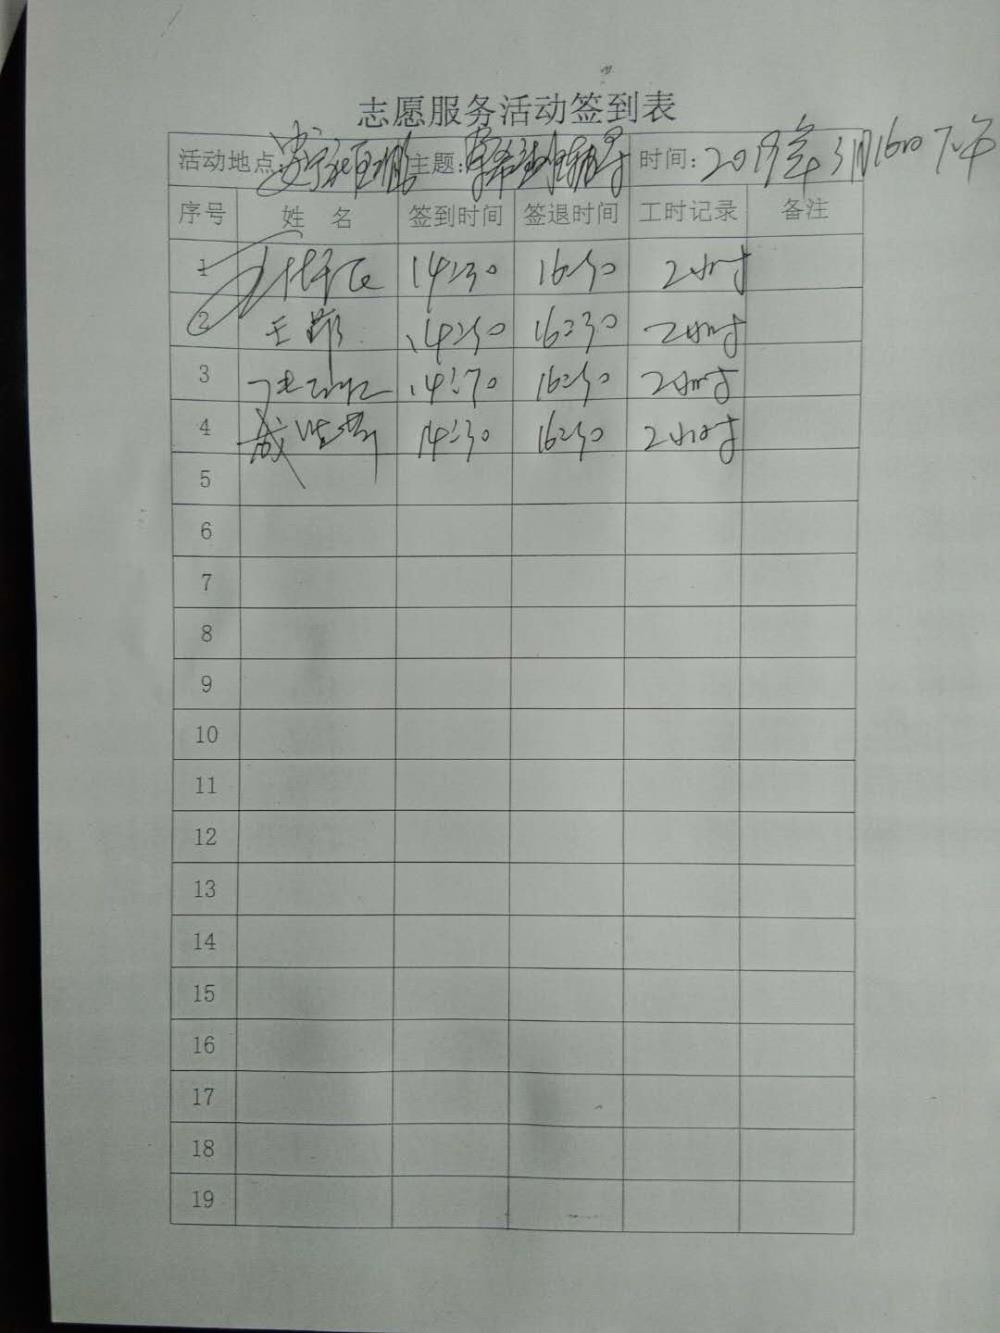 志愿服务活动签到表
活动地点: 主题: 时间: 2019年3月16日下午
序号 姓 名 签到时间 签退时间 工时记录 备注
1 14:30 16:30 2小时
2 王 14:30 16:30 2小时
3 14:30 16:30 2小时
4 成 14:30 16:30 2小时
5
6
7
8
9
10
11
12
13
14
15
16
17
18
19